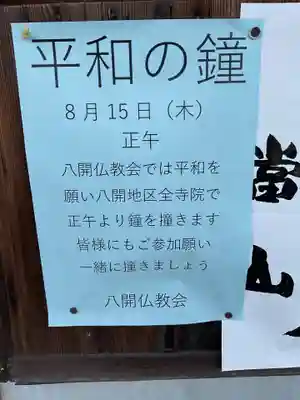 平和の鐘
8月15日（木）
正午
八開仏教会では平和を
願い八開地区全寺院で
正午より鐘を撞きます
皆様にもご参加願い
一緒に撞きましょう
八開仏教会
當山